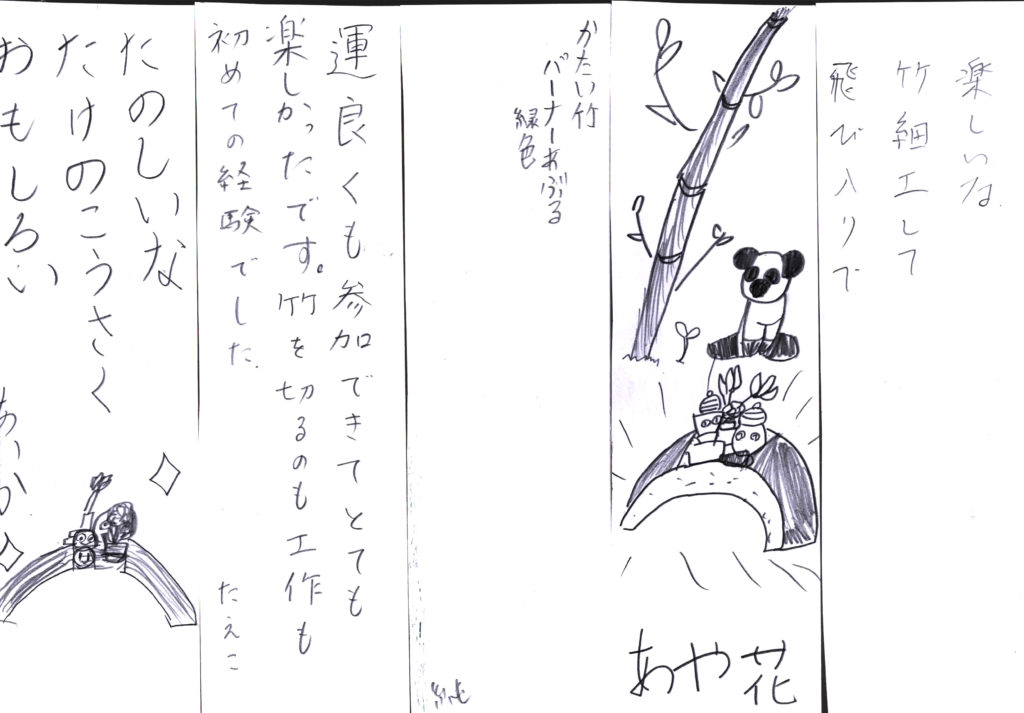 楽しいな
竹細工して
飛び入りで
あや花
かたい竹
バーナーあぶる
緑色
運良くも参加できてとても
楽しかったです。竹を切るのも工作も
初めての経験でした
たえこ
たのしいな
たけのこうさく
おもしろい